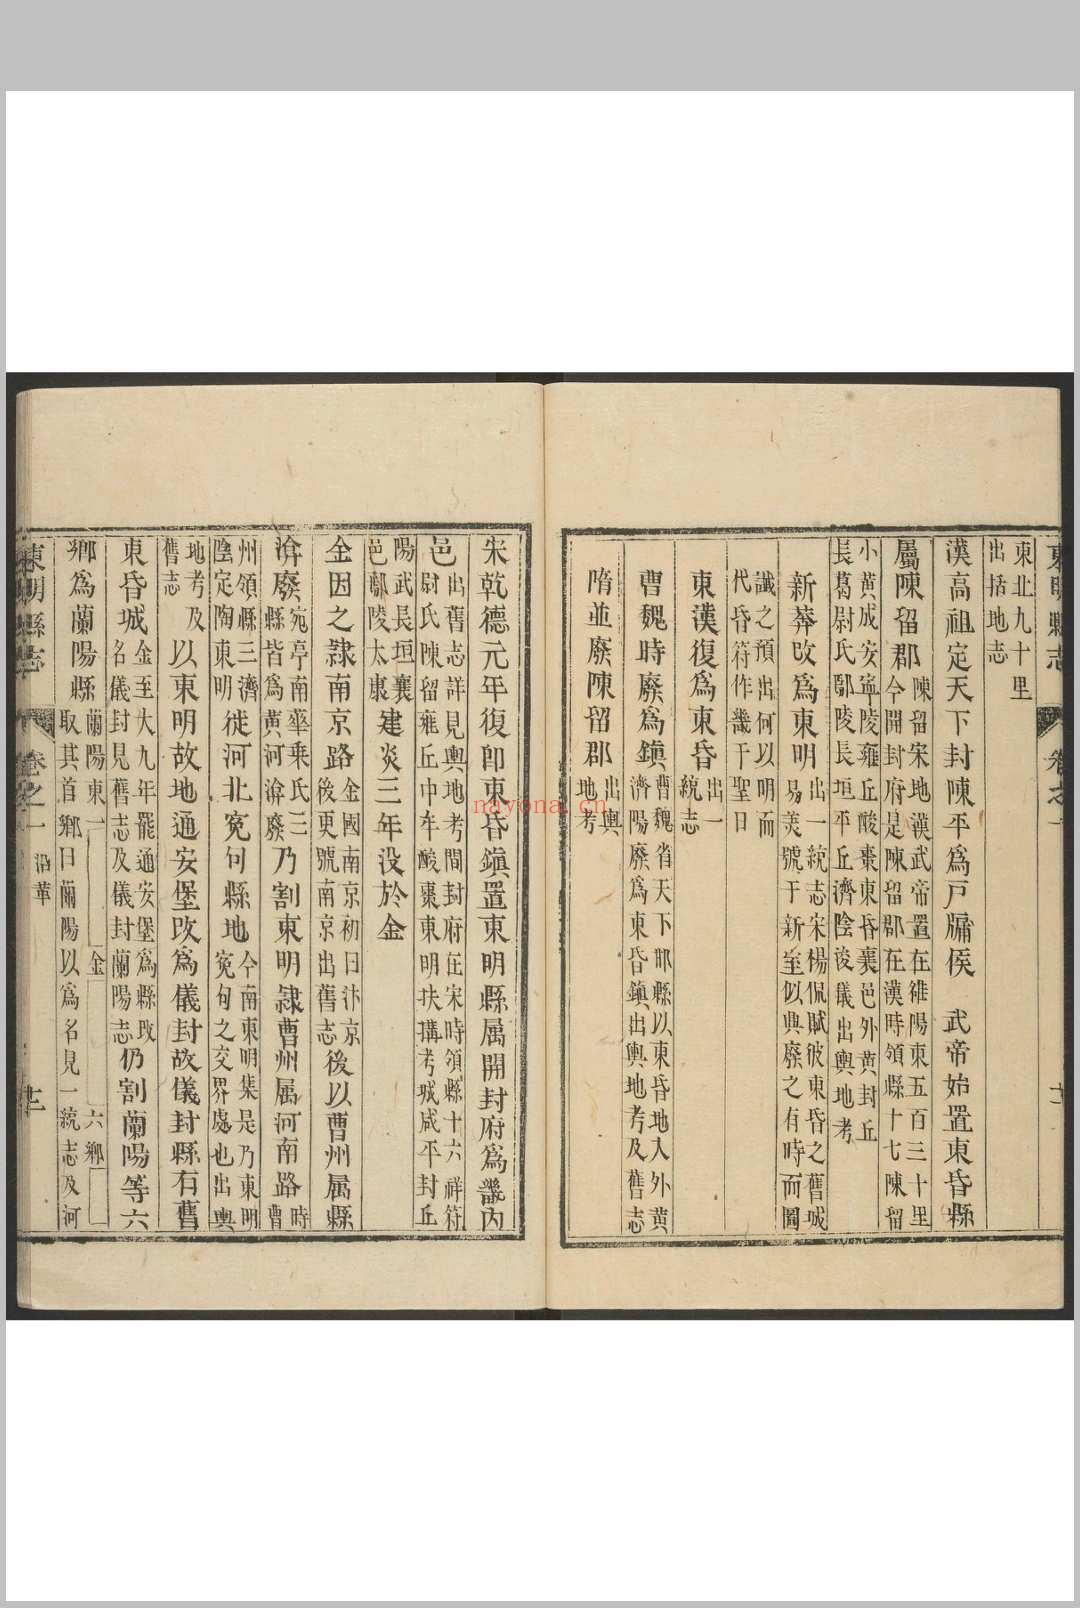 東明縣志 卷之一
東北九十里
出括地志
漢高祖定天下封陳平爲戸牖侯 武帝始置東昏縣
屬陳留郡陳留宋地漢武帝置在雒陽東五百三十里今開封府是陳留郡在漢時領縣十七陳留
小黃成安寧陵雍丘酸棗東昏襄邑外黃封丘長葛尉氏鄢陵長垣平丘濟陰浚儀出輿地考
新莽改爲東明出一統志宋楊侃賦彼東昏之舊城易美號于新至似興廢之有時而圖
讖之預出何以明而代昏符作畿于聖日
東漢復爲東昏出一統志
曹魏時廢爲鎮曹魏省天下郡縣以東昏地入外黃濟陽廢爲東昏鎮出輿地考及舊志
隋並廢陳留郡出輿地考
宋乾德元年復即東昏鎮置東明縣属開封府爲畿内
邑出舊志詳見輿地考開封府在宋時領縣十六祥符尉氏陳留雍丘中牟酸棗東明扶溝考城咸平封丘
陽武長垣襄邑鄢陵太康建炎三年没於金
金因之隷南京路金國南京初曰汴京後更號南京出舊志後以曹州属縣
渰廢宛亭南華乗氏三縣皆爲黃河渰廢乃割東明隷曹州属河南路時曹
州領縣三濟陰定陶東明徙河北寃句縣地今南東明集是乃東明寃句之交界處也出輿
地考及舊志以東明故地通安堡改爲儀封故儀封縣有舊
東昏城金至大九年罷通安堡爲縣改名儀封見舊志及儀封蘭陽志仍割蘭陽等六
鄉爲蘭陽縣蘭陽東一金六鄉取其首鄉曰蘭陽以爲名見一統志及河
東明縣志 卷之一 沿革 十二
nayona.cn